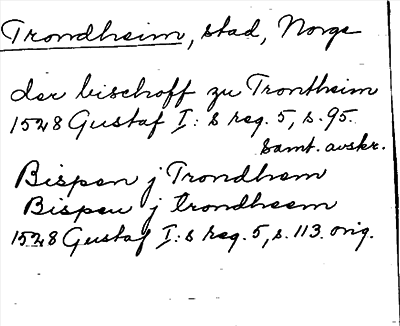 Trondheim, stad, Norge
der bischoff zu Trontheim
1528 Gustaf I:s reg. 5, s. 95.
Samt. avskr.
Bispen j Trondhem
Bispen j trondheem
1528 Gustaf I:s reg. 5, s. 113. orig.